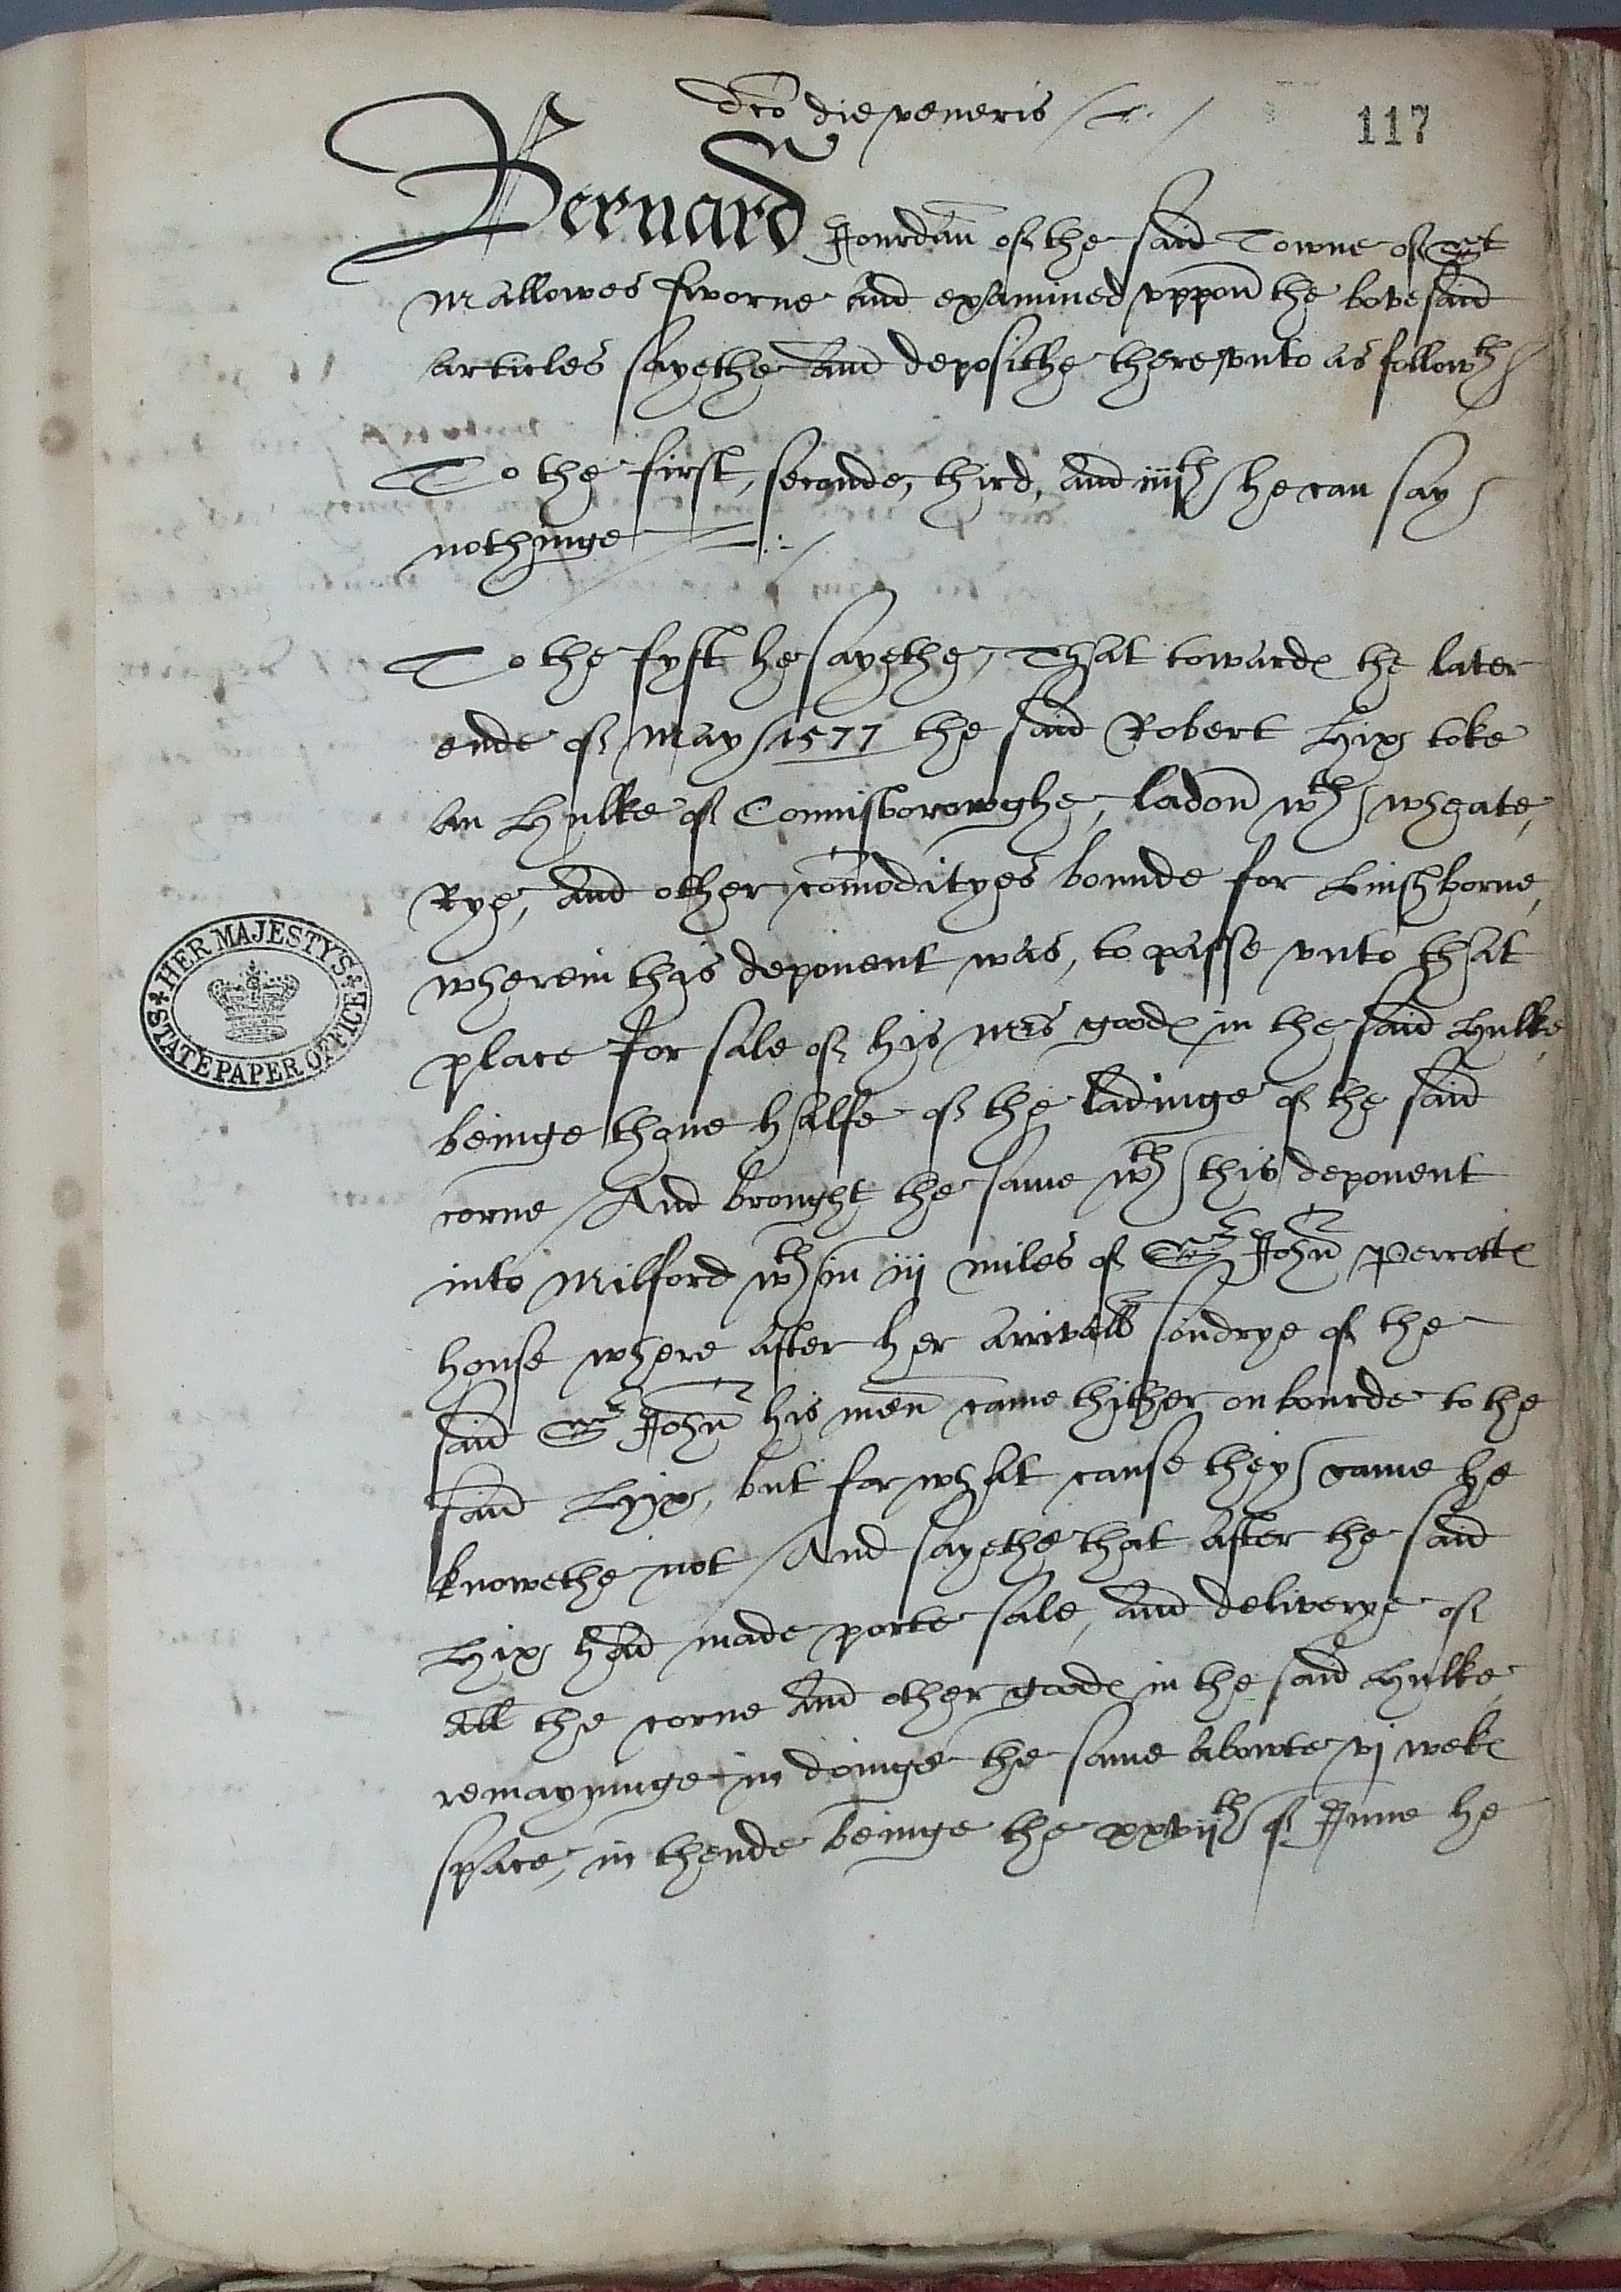 dco die veneris
117
Bernard Jourdan of the said Towne of St
Mallowes sworne and examined vppon the bovesaid
articles sayethe and deposithe therevnto as followth
To the first, seconde, third, and iiijth he can say
nothinge
To the fyft he sayethe, That towards the later
ende of May 1577 the said Robert Hix toke
an Hulke of Connisborowghe, ladon wth wheate,
Rye, and other comodityes bounde for Lushborne,
wherein this deponent was, to passe vnto that
place for sale of his mrs goods in the said Hulke,
beinge thone halfe of the ladinge of the said
corne And brought the same wth this deponent
into Milford wthin iij miles of Sr John Perrotts
house where after her arrivall sondrye of the
said Sr John his men came thither on bourde to the
said Hix, but for what cause they came he
knowethe not And sayethe that after the said
Hix had made porte sale, and deliverye of
all the corne and other goods in the said Hulke,
remayninge in doinge the same abowte vj weks
space, in thende beinge the xxvijth of June he
HER MAJESTY'S STATE PAPER OFFICE